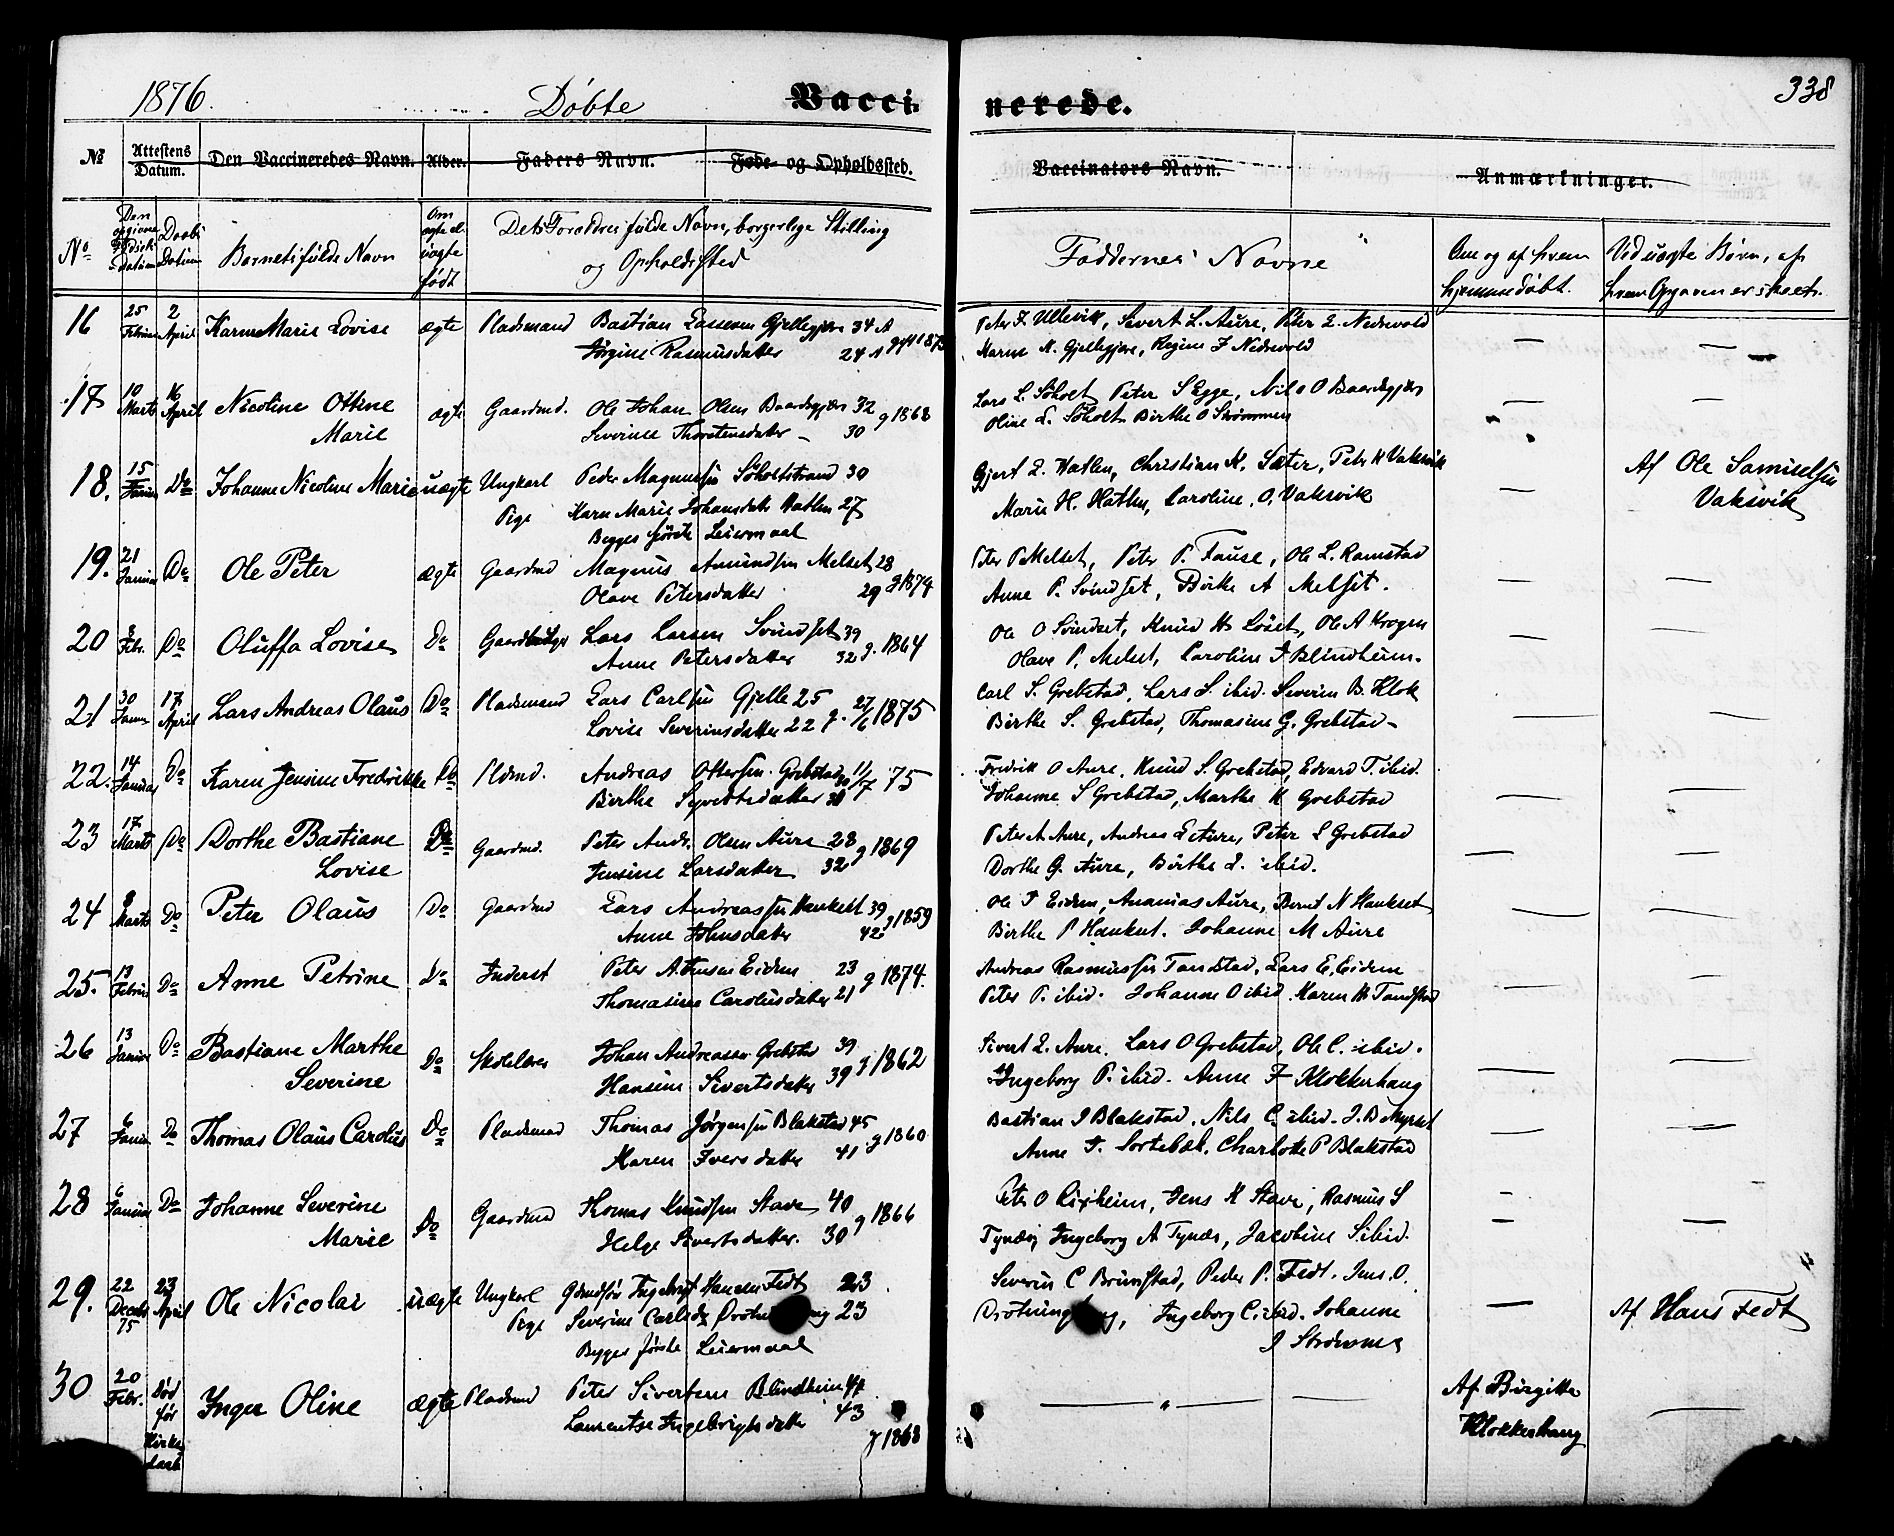 1876. Døbte Vacci- nerede. 338
No Attestens Datum. Den Vaccineredes Navn. Alder. Faders Navn. Føde- og Opholdssted. Vaccinators Navn. Anmærkninger.
No Den opgivne Datum Daabs Datum Barnets fulde Navn Om ægte el. uægte født Dets Forældres fulde Navn, borgerlige Stilling og Opholdssted Faddernes Navne Om og af hvem hjemmedøbt. Ved uægte Børn, af hvem Opgaven er skeet.
16 25 Februar 2 April Karen Marie Lovise ægte Pladsmand Bastian Lassesen Gjellegjere 34 A
Jørgine Rasmusdatter 24 A
Peter J. Ullevik, Sivert L. Aure, Peter L. Nedrevold
Karne K. Gjellegjere, Regine J Nedrevold
17 10 Marts 16 April Nicoline Ottine Marie ægte Gaardmd. Ole Johan Olsen Baardsgjære 32 g 1868
Severine Thorstensdatter 30
Lars L. Søholt Peter S Egge, Nils O Baardsgjære
Oline L. Søholt Birthe O Strømmen
18. 15 Januar Do Johanne Nicoline Marie uægte Ungkarl Peder Magnussen Søholtstrand 30
Pige Karn Marie Johansdatr Hatlen 27
Begges første Leiermaal
Gjert L. Hatlen, Christian K. Sæter, Petr K Vaksvik
Marie H. Hatlen, Caroline O. Vaksvik
Af Ole Samuelsen
Vaksvik
19. 21 Januar Do Ole Peter ægte Gaardmd Magnus Amundsen Melset 28
Olave Petersdatter 29 g 1874
Peter P Melset, Peter P. Fause, Ole L. Ramstad
Anne P. Svindset, Birthe A Melset.
20 8 Febr. Do Oluffa Lovise Do Gaardbruger Lars Larsen Svindset 39
Anne Petersdatter 32 g. 1864
Ole O Svindset, Knud H Løset, Ole A Krogen
Olave P. Melset, Caroline J Blindheim.
21 30 Januar 17 April Lars Andreas Olaus Do Pladsmand Lars Carlsen Gjelle 25
Lovise Severinsdatter 22 g. 27/6 1875
Carl S. Grebstad, Lars S. ibid. Severin B. Klok
Birthe S. Grebstad, Thomasine G. Grebstad
22. 14 Januar Do Karen Jensine Fredrikke Do Pldmd. Andreas Ottersen Grebstad 11/7 75
Birthe Syvertsdatter 30
Fredrik O Aure, Knud S. Grebstad, Edvard T. ibid.
Johanne S Grebstad, Marthe K Grebstad
23 17 Marts Do Dorthe Bastiane Lovise Do Gaardmd. Peter Andr. Olsen Aure 28 g 1869
Jensine Larsdatter 32
Peter A Aure, Andreas L Aure, Peter S Grebstad
Dorthe G. Aure, Birthe L. ibid.
24 8 Marts Do Peter Olaus Do Gaardmd Lars Andreassen Haukset 39 g 1859
Anne Johnsdatter 42
Ole J Eidem, Ananias Aure, Bernt N Haukset
Birthe P Haukset. Johanne M Aure
25. 13 Februar Do Anne Petrine Do Inderst Peter A. Jensen Eidem 23 g 1874.
Thomasine Carolusdatter 21
Andreas Rasmussen Tandstad, Lars E. Eidem
Peter P. ibid. Johanne O ibid. Karen H Tandstad
26 13 Januar Do Bastiane Marthe Severine Do Skolelærer Johan Andreasen Grebstad 39 g 1862
Hansine Sivertsdatter 39
Sivert L. Aure. Lars O Grebstad, Ole C. ibid.
Ingeborg P. ibid. Anne J Klokkerhaug
27 6 Januar Do Thomas Olaus Carolus Do Pladsmand Thomas Jørgensen Blakstad 45
Karen Iversdatter 41 g 1860
Bastian J Blakstad, Nils C ibid. J. B Myrset
Anne J. Sortebæk. Charlotte P Blakstad
28 6 Januar Do Johanne Severine Marie Do Gaardmd Thomas Knudsen Stave 40 g 1866
Helge Sivertsdatter. 30
Peter O Risheim, Jens K Stave, Rasmus S
Tynæs, Ingeborg A Tynæs, Jacobine S ibid.
29. 22 Decebr 75 23 April Ole Nicolai uægte Ungkarl Ingebrigt Hansen Fedt 23
Pige Severine Carlsdr 23
Begges første Leiermaal
Severin C Brunstad, Peder P. Fedt. Jens O.
Drotninghaug, Ingeborg C ibid. Johanne
J Strømme
Af Hans Fedt
30 20 Febr. Død før Kirkedaab Inger Oline ægte Pladsmd Peter Sivertsen Blindheim 44
Laurentse Ingebrigtsdatter 43
g 1868
Af Birgitte
Klokkerhaug